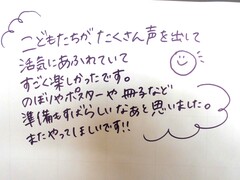 こどもたちが、たくさん声を出して
活気にあふれていて
すごく楽しかったです。
のぼりやポスターや冊子など
準備もすばらしいなあと思いました。
またやってほしいです!!